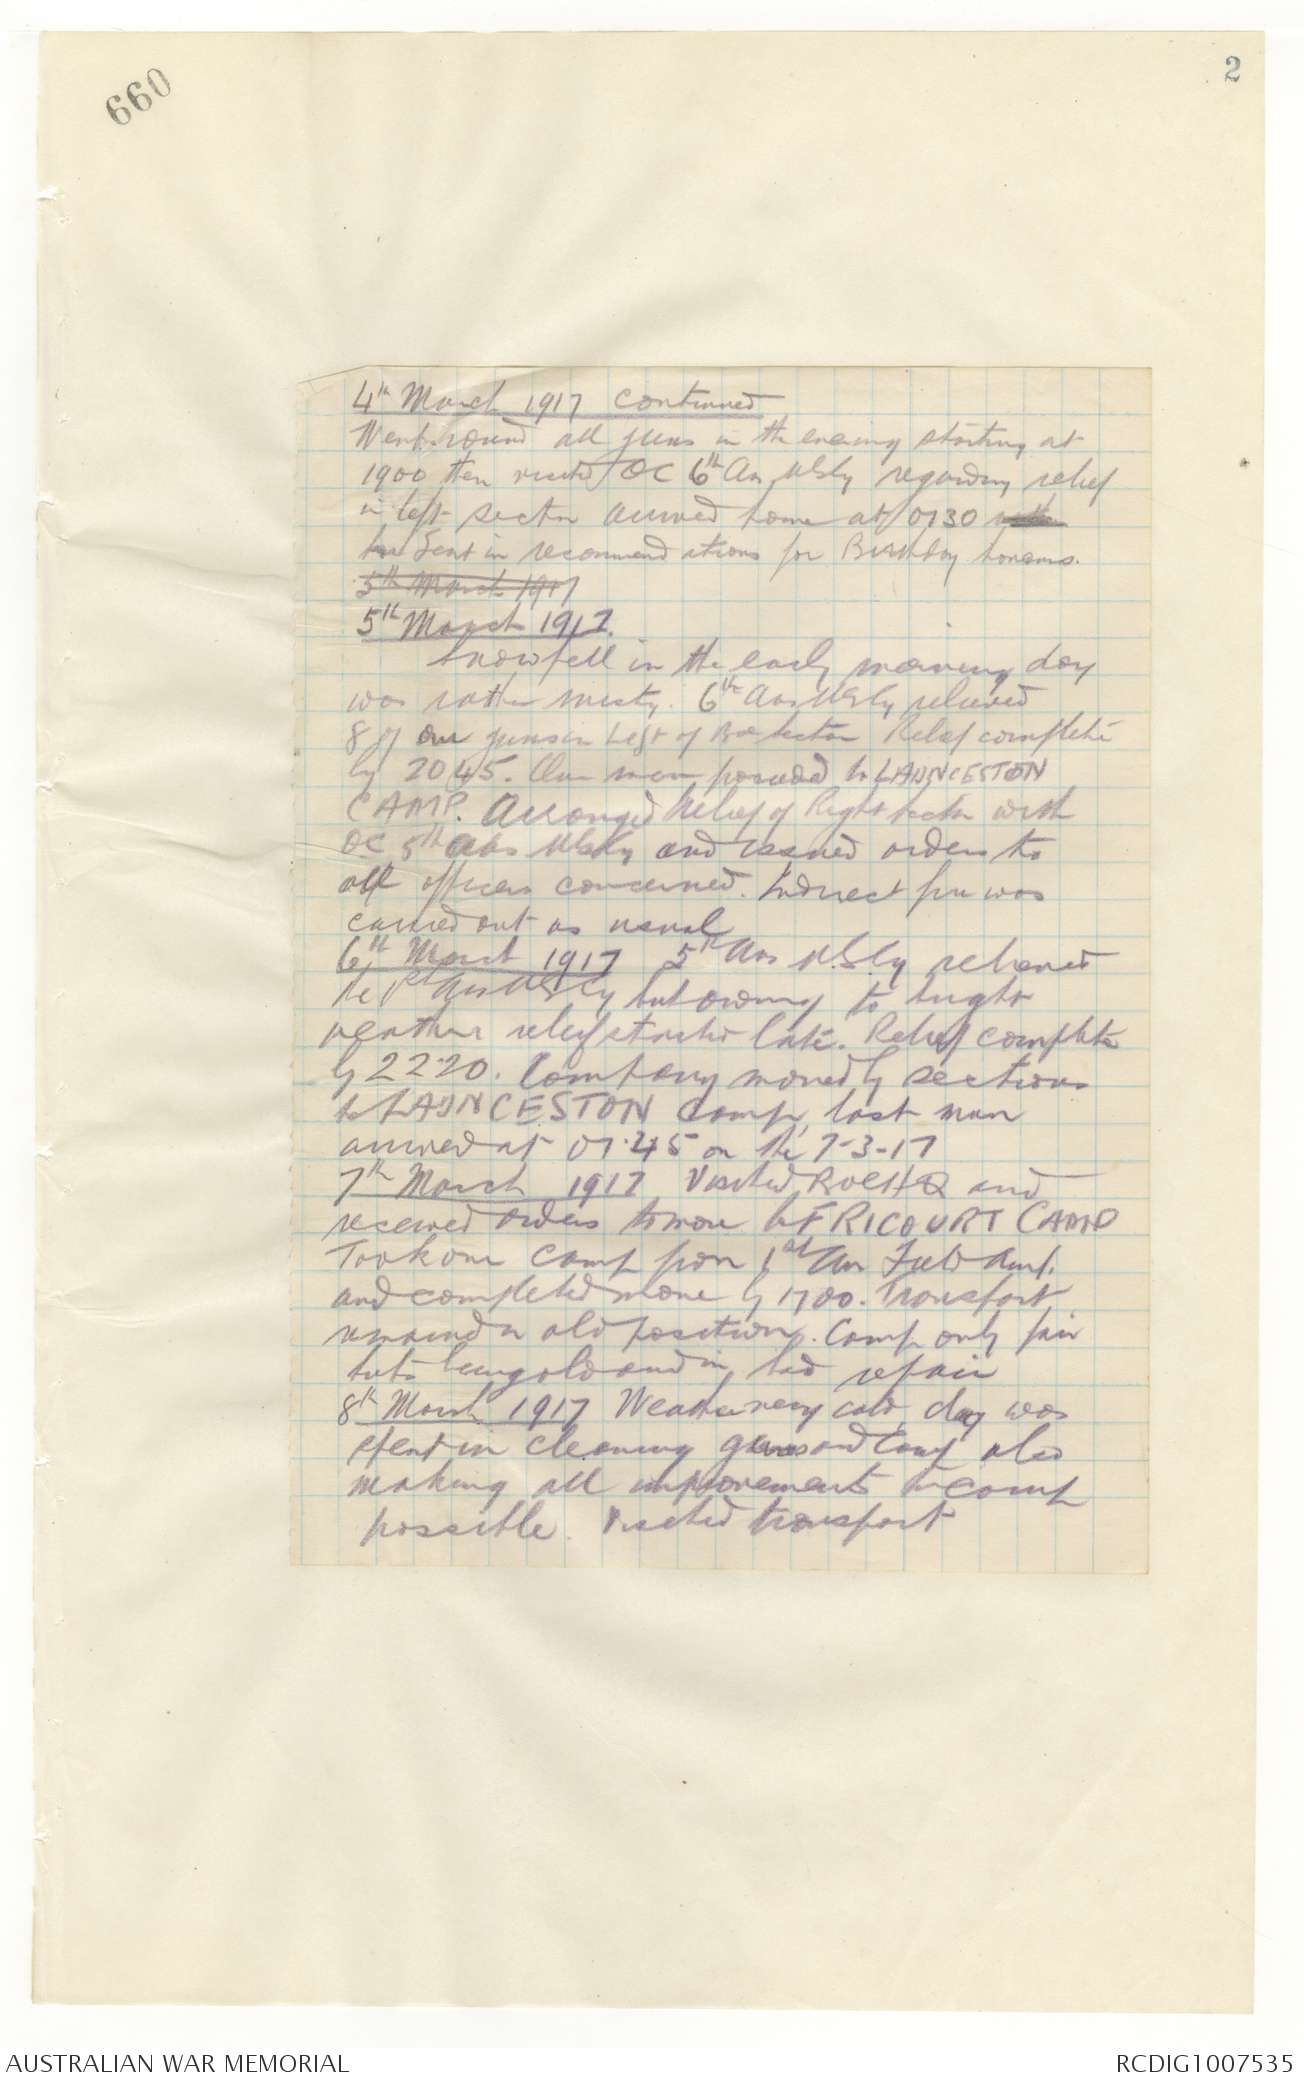 660
2
4th March 1917 continued
Went round all guns in the evening starting at
1900 then visited OC 6th Aus M G Cy regarding relief
in left sector arrived home at 0130
Sent in recommendations for Birthday honours.
5th March 1917
5th March 1917.
Snow fell in the early morning day
was rather misty. 6th Aus M G Cy relieved
8 of our guns in Left of Bde sector Relief complete
by 2045. Our men proceeded to LAUNCESTON
CAMP. Arranged Relief of Right sector with
OC 5th Aus M G Cy and issued orders to
all officers concerned. Indirect fire was
carried out as usual
6th March 1917 5th Aus M.G.Cy relieved
the 1st Aus M G Cy but owing to bright
weather relief started late. Relief complete
by 2220. Company moved by sections
to LAUNCESTON Camp, last man
arrived at 01.45 on the 7-3-17
7th March 1917 Visited BdeHQ and
received orders to move to FRICOURT CAMP
Took over camp from 1st Aus Field Amb.
and completed move by 1700. Transport
remained in old position. Camp only fair
huts being old and in bad repair
8th March 1917 Weather very cold, day was
spent in cleaning guns and Camp also
making all improvements to camp
possible. Visited transport
AUSTRALIAN WAR MEMORIAL
RCDIG1007535